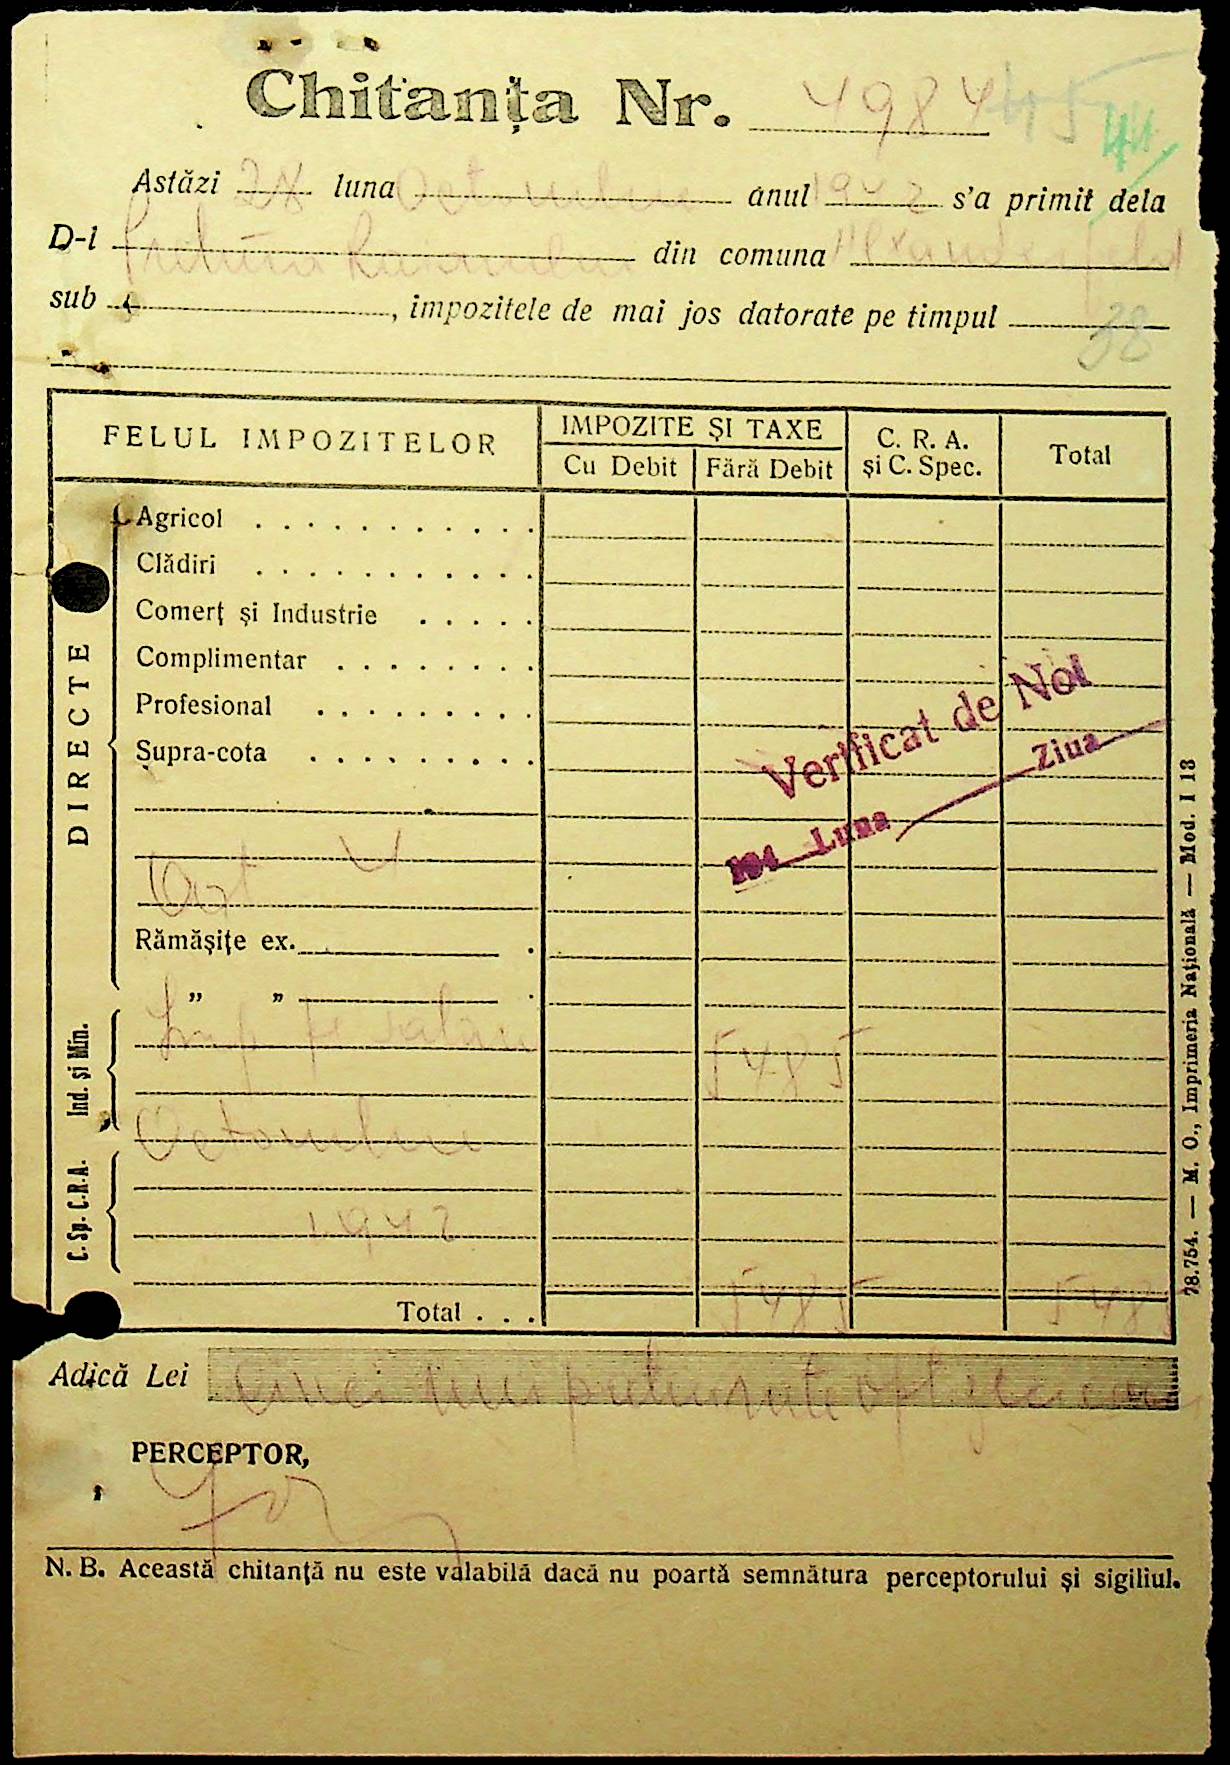 Chitanța Nr. 4984 45 44
Astăzi 28 luna Octombrie anul 1942 s'a primit dela
D-l din comuna Alxanderfeld
sub , impozitele de mai jos datorate pe timpul 38
FELUL IMPOZITELOR IMPOZITE ȘI TAXE C. R. A. și C. Spec. Total
Cu Debit Fără Debit
DIRECTE
Agricol
Clădiri
Comerț și Industrie
Complimentar
Profesional
Supra-cota
Verificat de Noi
194 Luna Ziua
Art V
Rămășițe ex.
" "
Ind. și Min.
Imp pe salarii 5485
Octombrie
C. Sp. C.R.A.
1942
Total . . . 5485 5485
Adică Lei cinci mii patrusute opt zeci cinci
PERCEPTOR,
N. B. Această chitanță nu este valabilă dacă nu poartă semnătura perceptorului și sigiliul.
78.754. — M. O., Imprimeria Națională — Mod. I 13